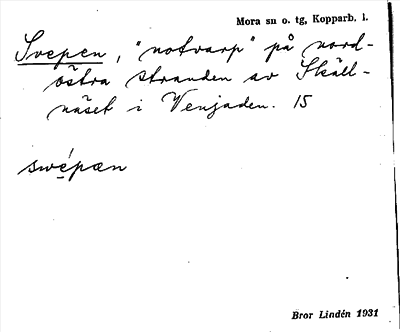 Mora sn o. tg, Kopparb. l.
Svepen, "notvarp" på nord-
östra stranden av Skäll-
näset i Venjaden. 15
swépæn
Bror Lindén 1931